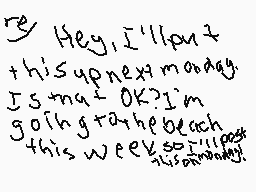 re/
Hey, I'll put
this up next monday.
Is that OK? I'm
going to the beach
this week so I'll post
this on monday!